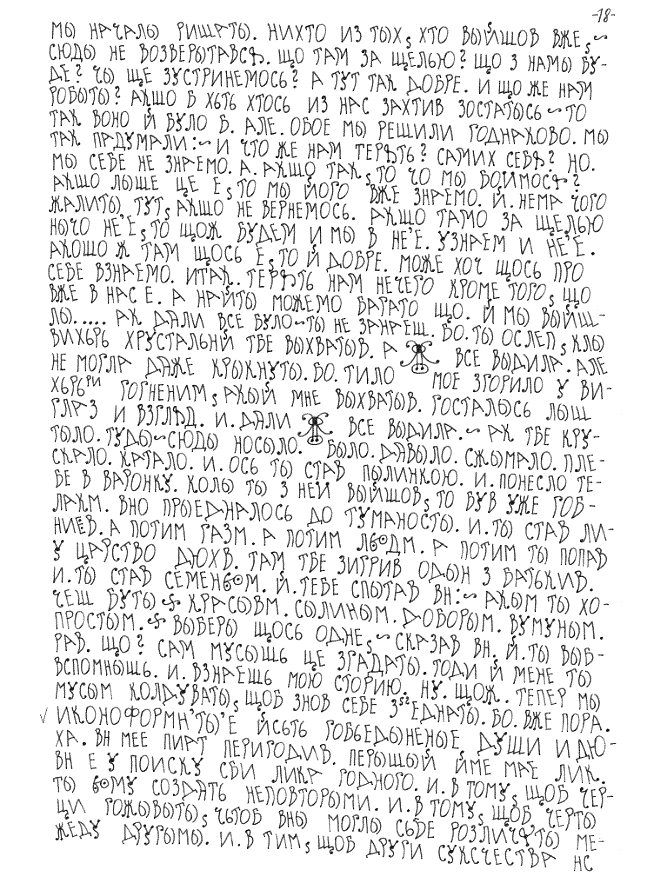 -18-
МЫ НАЧАЛЫ РИШАТЫ. НИХТО ИЗ ТЫХ, ХТО ВЫЙШОВ ВЖЕ,~
СЮДЫ НЕ ВОЗВЕРЫТАВСѦ. ЩО ТАМ ЗА ЩЕЛЬЮ? ЩО З НАМЫ БУ-
ДЕ? ЧЫ ЩЕ ЗУСТРИНЕМОСЬ? А ТУТ ТАК ДОБРЕ. И ЩО ЖЕ НАМ
РОБЫТЫ? АКШО Б ХЬТЬ ХТОСЬ ИЗ НАС ЗАХТИВ ЗОСТАТЫСЬ~ТО
ТАК ВОНО Й БУЛО Б. АЛЕ. ОБОЕ МЫ РЕШИЛИ ГОДНАКОВО. МЫ
ТАК ПАДУМАЛИ:~И ЧТО ЖЕ НАМ ТЕРѦТЬ? САМИХ СЕБѦ? НО.
МЫ СЕБЕ НЕ ЗНАЕМО. А. АКЩО ТАК, ТО ЧО МЫ БОИМОСѦ?
АКШО ЛЫШЕ ЦЕ Е, ТО МЫ ЙОГО ВЖЕ ЗНАЕМО. Й. НЕМА ЧОГО
ЖАЛИТЫ, ТУТ, АКШО НЕ ВЕРНЕМОСЬ. АКЩО ТАМО ЗА ЩЕЛЬЮ
НЫЧО НЕ'Е, ТО ЩОЖ БУДЕМ И МЫ В НЕ'Е. УЗНАЕМ И НЕ'Е.
АКОШО Ж ТАМ ЩОСЬ Е, ТО Й ДОБРЕ. МОЖЕ ХОЧ ЩОСЬ ПРО
СЕБЕ ВЗНАЕМО. ИТАК. ТЕРѦТЬ НАМ НЕЧЕГО КРОМЕ ТОГО, ЩО
ВЖЕ В НАС Е. А НАЙТЫ МОЖЕМО БАГАТО ЩО. Й МЫ ВЫЙШ-
ЛЫ..... АК ДАЛИ ВСЕ БУЛО~ТЫ НЕ ЗАНАЕШ. БО. ТЫ ОСЛЕП, КЛЫ
ВИХЬРЬ ХРУСТАЛЬНИ ТБЕ ВЫХВАТЫВ. А ВСЕ ВЫДИЛА. АЛЕ
НЕ МОГЛА ДАЖЕ КРЫКНУТЫ. БО. ТИЛО МОЕ ЗГОРИЛО У ВИ-
ХЬРЬРИ ГОГНЕНИМ, АКЫЙ МНЕ ВЫХВАТЫВ. ГОСТАЛЫСЬ ЛЫШ
ГЛАЗ И ВЗГЛѦД. И. ДАЛИ ВСЕ ВЫДИЛА.~ АК ТБЕ КРУ-
ТЫЛО. ТУДЫ~СЮДЫ НОСЫЛО. БЫЛО. ДАВЫЛО. СЖЫМАЛО. ПЛЕ-
СКАЛО. КАТАЛО. И. ОСЬ ТЫ СТАВ ПЫЛИНКОЮ. И. ПОНЕСЛО ТЕ-
БЕ В ВАРОНКУ. КОЛЫ ТЫ З НЕЙ ВЫЙШОВ, ТО БУВ УЖЕ ГОБ-
ЛАКМ. ВНО ПРЫЕДНАЛОСЬ ДО ТУМАНОСТЫ. И. ТЫ СТАВ ЛИ-
НИЕВ. А ПОТИМ ГАЗМ. А ПОТИМ ЛЬОДМ. А ПОТИМ ТЫ ПОПАВ
У ЦАРСТВО ДЮХВ. ТАМ ТБЕ ЗИГРИВ ОДЫН З БАТЬКИВ.
И. ТЫ СТАВ СЕМЕНЬОМ. Й. ТЕБЕ СПЫТАВ ВН:~ АКЫМ ТЫ ХО-
ЧЕШ БУТЫ~ КРАСЫВМ. СЫЛИНЫМ. ДОБОРЫМ. ВУМУНЫМ.
ПРОСТЫМ.~ ВЫБЕРЫ ЩОСЬ ОДНЕ,~ СКАЗАВ ВН. Й. ТЫ ВЫБ-
РАВ. ЩО? САМ МУСЫШЬ ЦЕ ЗГАДАТЫ. ТОДИ Й МЕНЕ ТЫ
ВСПОМНЫШЬ. И. ВЗНАЕШЬ МОЮ СТОРИЮ. НУ. ЩОЖ. ТЕПЕР МЫ
МУСЫМ КОЛДУВАТЫ, ЩОБ ЗНОВ СЕБЕ ЕДНАТЫ. БО. ВЖЕ ПОРА.
√ ИКОНОФОРМН'ТЫ'Е ЙСЬТЬ ГОБЬЕДЫНЕНЫЕ ДУШИ И ДЮ-
ХА. ВН МЕЕ ПИАТ ПЕРИГОДИВ. ПЕРЫШЫЙ ЙМЕ МАЕ ЛИК.
ВН Е У ПОИСКУ СБИ ЛИКА ГОДНОГО. И. В ТОМУ, ЩОБ ЧЕР-
ТЫ ЬОМУ СОЗДАТЬ НЕПОВТОРЫМИ. И. В ТОМУ, ЩОБ ЧЕРТЫ
ЦИ ГОЖЫВЫТЫ, ЧЬТОБ ВНЫ МОГЛЫ СЬБЕ РОЗЛИЧѦТЫ МЕ-
ЖЕДУ ДРУГЫМЫ. И. В ТИМ, ЩОБ ДРУГИ СУКСЧЕСТВА НС